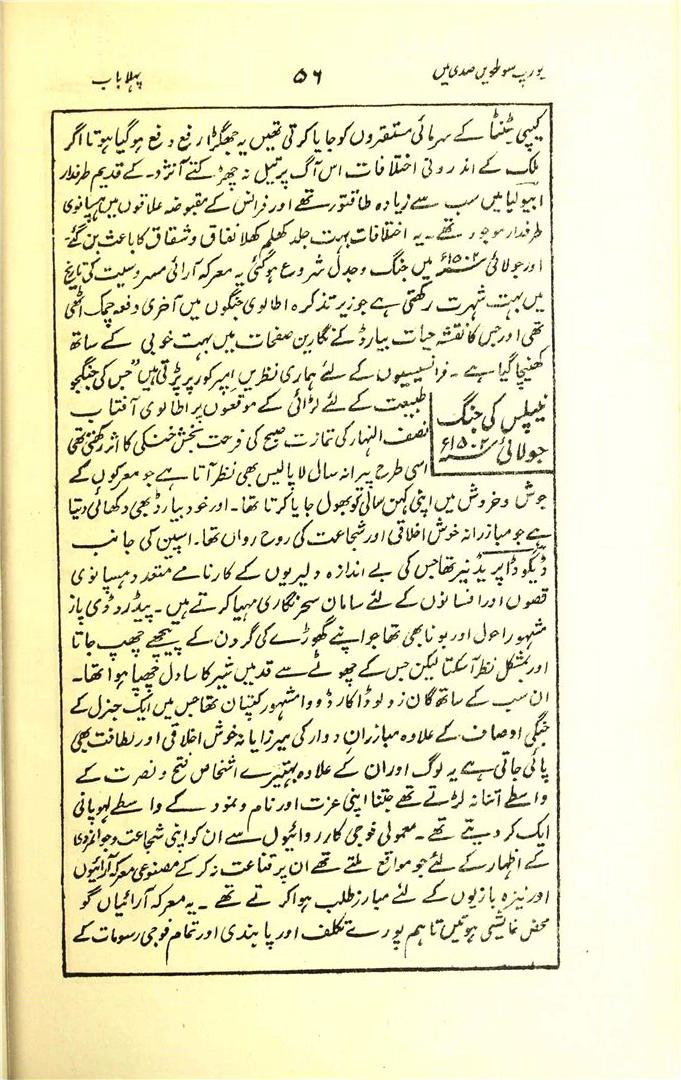 یورپ سولھویں صدی میں
۵۶
پہلا باب
کیپی ٹنٹا کے سرمائی مستقروں کو جایا کرتی تھیں یہ جھگڑا رفع دفع ہو گیا ہوتا اگر
ملک کے اندرونی اختلافات اس آگ پر تیل نہ چھڑکتے آنژو۔ کے قدیم طرفدار
اپیولیا میں سب سے زیادہ طاقتور تھے اور فرانس کے مقبوضہ علاقوں میں ہسپانوی
طرفدار موجود تھے۔ یہ اختلافات بہت جلد کھلم کھلا نفاق و شقاق کا باعث بن گئے
اور جولائی ۱۵۰۲ء میں جنگ و جدل شروع ہو گئی یہ معرکہ آرائی مسروسیت کی تاریخ
میں بہت شہرت رکھتی ہے جو زیر تذکرہ اطالوی جنگوں میں آخری دفعہ چمک اٹھی
تھی اور جس کا نقشہ حیات بیارڈ کے نگارین صفحات میں بہت خوبی کے ساتھ
کھینچا گیا ہے۔ فرانسیسیوں کے لئے ہماری نظریں امپر کور پر پڑتی ہیں "جس کی جنگجو
طبیعت کے لئے لڑائی کے موقعوں پر اطالوی آفتاب
نیپلس کی جنگ
جولائی ۱۵۰۲ء
نصف النہار کی تمازت صبح کی فرحت بخش خنکی کا اثر رکھتی تھی
اسی طرح پیرانہ سال لا پالیس بھی نظر آتا ہے جو معرکوں کے
جوش و خروش میں اپنی کہن سالی تو بھول جایا کرتا تھا۔ اور خود بیارڈ بھی دکھائی دیتا
ہے جو مبازرانہ خوش اخلاقی اور شجاعت کی روح رواں تھا۔ اسپین کی جانب
ڈیگو ڈا پریڈنیر تھا جس کی بے اندازہ دلیریوں کے کارنامے متعدد ہسپانوی
قصوں اور افسانوں کے لئے سامان سحر نگاری مہیا کرتے ہیں۔ پیڈرو ڈی پاز
مشہور احول اور بونا بھی تھا جو اپنے گھوڑے کی گردن کے پیچھے چھپ جاتا
اور بمشکل نظر آسکتا لیکن جس کے چھوٹے سے قد میں شیر کا سا دل چھپا ہوا تھا۔
ان سب کے ساتھ گان زولوڈا کارڈووا مشہور کپتان تھا جس میں ایک جنرل کے
جنگی اوصاف کے علاوہ مبازران دوار کی میرزایانہ خوش اخلاقی اور لطافت بھی
پائی جاتی ہے یہ لوگ اور ان کے علاوہ بہتیرے اشخاص فتح و نصرت کے
واسطے اتنا نہ لڑتے تھے جتنا اپنی عزت اور نام و نمود کے واسطے لہو پانی
ایک کر دیتے تھے۔ معمولی فوجی کارروائیوں سے ان کو اپنی شجاعت و جوانمردی
کے اظہار کے لئے جو مواقع ملتے تھے ان پر قناعت نہ کر کے مصنوعی معرکہ آرائیوں
اور نیزہ بازیوں کے لئے مبارز طلب ہوا کرتے تھے۔ یہ معرکہ آرائیاں گو
محض نمائشی ہوتیں تاہم پورے تکلف اور پابندی اور تمام فوجی رسومات کے